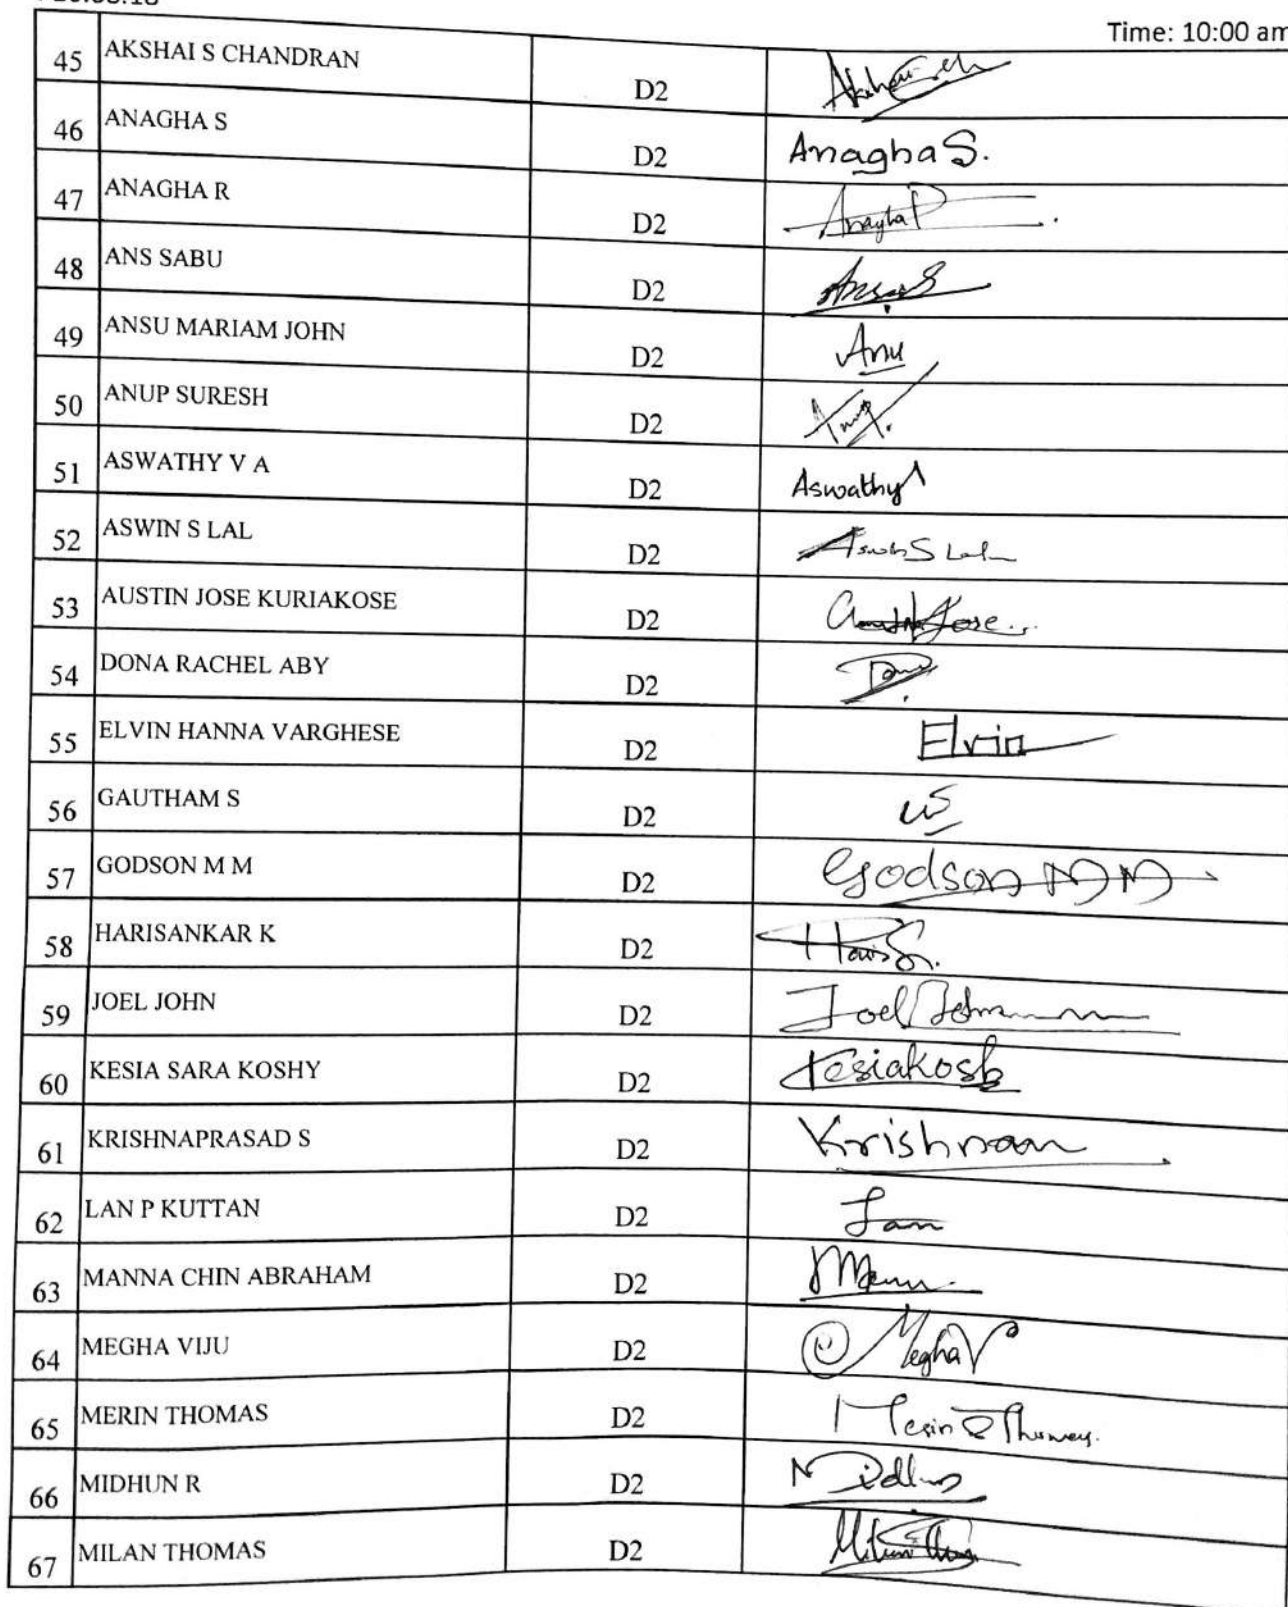 Time: 10:00 am
45 AKSHAI S CHANDRAN D2
46 ANAGHA S D2 Anagha S.
47 ANAGHA R D2 Anagha R
48 ANS SABU D2
49 ANSU MARIAM JOHN D2 Anu
50 ANUP SURESH D2
51 ASWATHY V A D2 Aswathy
52 ASWIN S LAL D2 Aswin S Lal
53 AUSTIN JOSE KURIAKOSE D2 Jose
54 DONA RACHEL ABY D2
55 ELVIN HANNA VARGHESE D2 Elvin
56 GAUTHAM S D2
57 GODSON M M D2 Godson M M
58 HARISANKAR K D2
59 JOEL JOHN D2 Joel John
60 KESIA SARA KOSHY D2 Kesiakosh
61 KRISHNAPRASAD S D2 Krishnaan
62 LAN P KUTTAN D2 Lan
63 MANNA CHIN ABRAHAM D2
64 MEGHA VIJU D2 Megha V
65 MERIN THOMAS D2 Merin Thomas
66 MIDHUN R D2
67 MILAN THOMAS D2